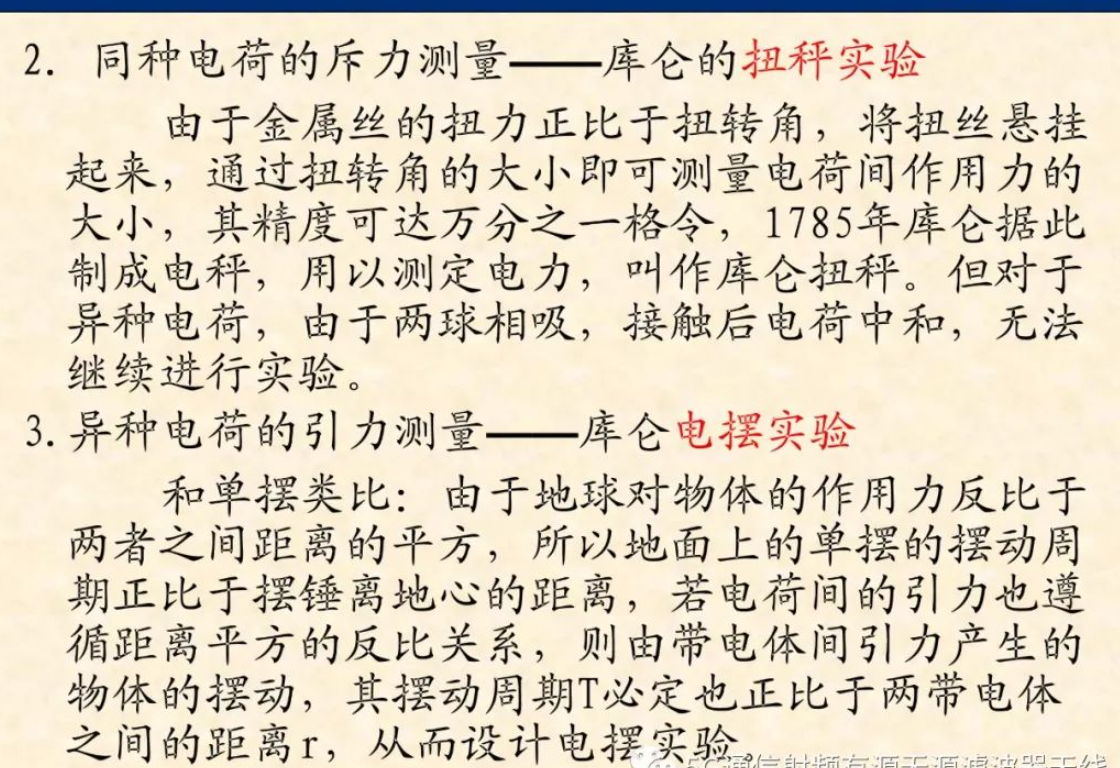 2. 同种电荷的斥力测量——库仑的扭秤实验
由于金属丝的扭力正比于扭转角，将扭丝悬挂
起来，通过扭转角的大小即可测量电荷间作用力的
大小，其精度可达万分之一格令，1785年库仑据此
制成电秤，用以测定电力，叫作库仑扭秤。但对于
异种电荷，由于两球相吸，接触后电荷中和，无法
继续进行实验。
3. 异种电荷的引力测量——库仑电摆实验
和单摆类比：由于地球对物体的作用力反比于
两者之间距离的平方，所以地面上的单摆的摆动周
期正比于摆锤离地心的距离，若电荷间的引力也遵
循距离平方的反比关系，则由带电体间引力产生的
物体的摆动，其摆动周期T必定也正比于两带电体
之间的距离r，从而设计电摆实验。
5G通信射频有源无源滤波器天线